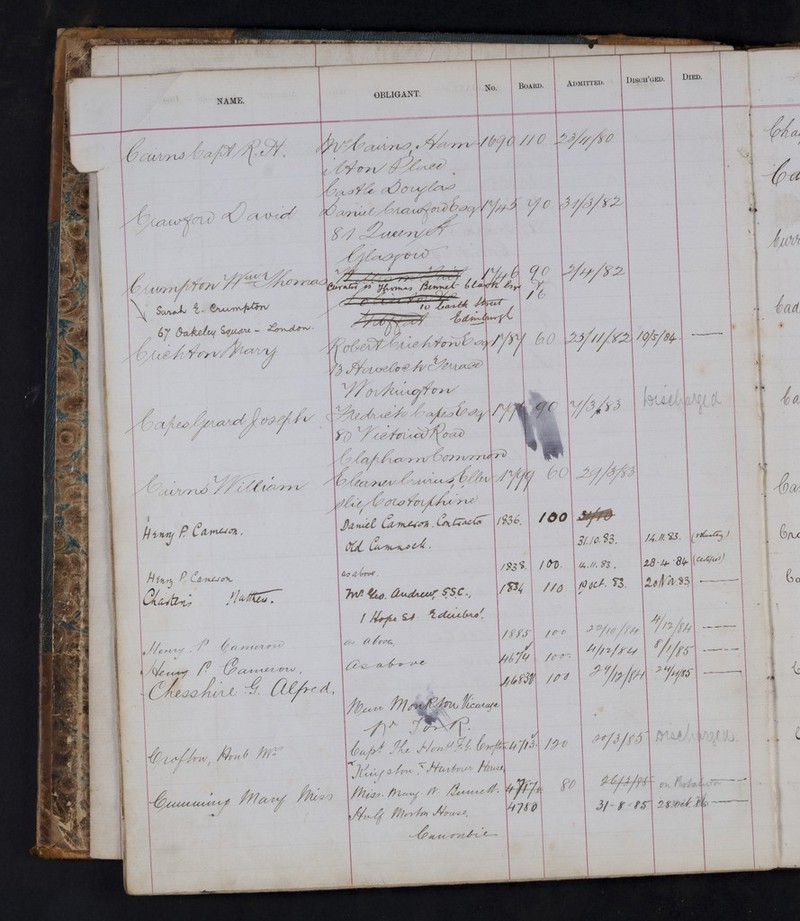 NAME. OBLIGANT. No. BOARD. ADMITTED. DISCH'GED. DIED.
Cairns Capt R. H. Mr Cairns, Ham 1690 110 23/11/80
ilton Place
Castle Douglas
Crawford David Daniel Crawford Esq 1745 70 31/3/82
81 Queen St
Glasgow
Crumpton Thomas 1746 90 2/4/82
Curator is Thomas Bennet Clark Esq
Sarah E. Crumpton
10 Castle Street
67 Oakeley Square - London.
Edinburgh
Crichton Mary Robert Crichton Esq 1787 60 25/11/82 10/5/84
13 Havelock Terrace
Workington
Capes Gerard Joseph Fredrick Capes Esq 90 7/3/83 Discharged
80 Victoria Road
Clapham Common
Cairns William 60 29/3/83
Corstorphine
Henry P. Cameron. Daniel Cameron. Contractor 1836. 100 31/10
Old Cumnock. 31.10.83. 14.11.83.
Henry P. Cameron as above. 1838. 100. 14.11.83. 28.4.84
Charteris Matthew. Mr Geo. Andrew, S.S.C., 1834 110 19 Oct. 83. 20 Nov 83
1 Hope St Edinbro'.
Henry P Cameron as above, 1885 100 20/10/84 4/12/84
Henry P Cameron, as above 100 4/12/84 8/1/85
Chesshire G. Alfred. 100 29/12/84
Monkton Vicarage
Nr York
Crofton, Honb Mrs Capt The Honble Crofton 4713 120 20/3/85 Discharged
Kingston Harbour House
Cumming Mary Miss Miss Mary Bennett. 80 26/3/85 on Probation
Half Morton House. 4780 31-8-85 28 Oct 86
Canonbie